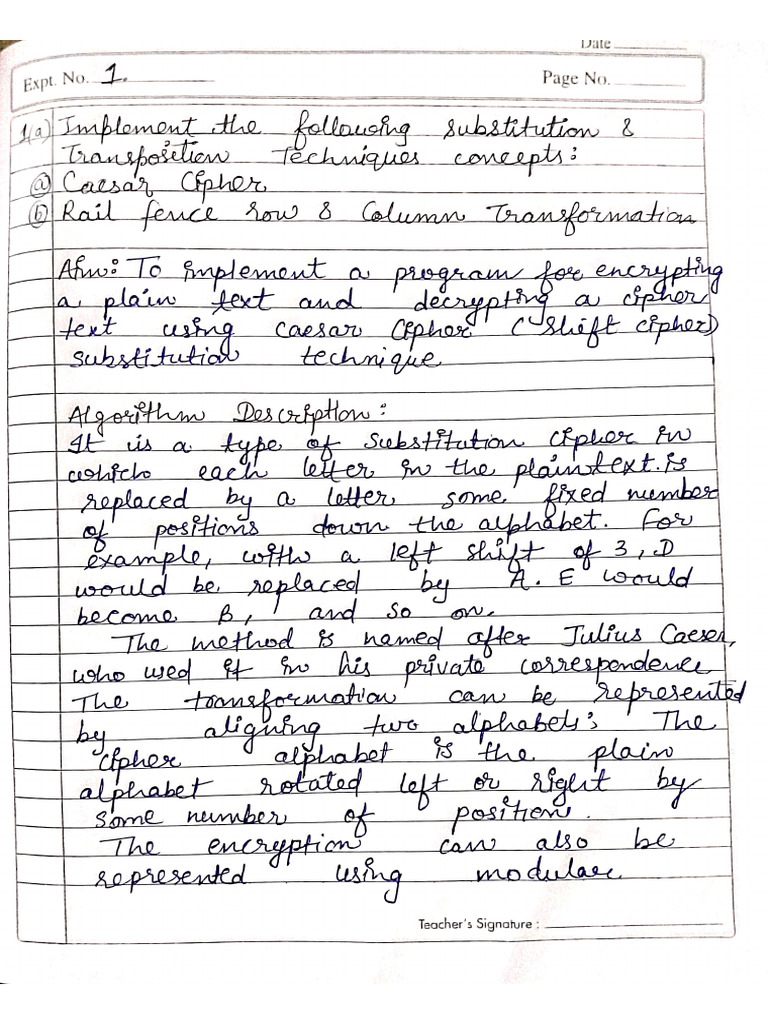 Date
Expt. No. 1.
Page No.
1(a) Implement the following substitution &
Transposition Techniques concepts:
(a) Caesar Cipher
(b) Rail fence row & Column Transformation
Aim: To implement a program for encrypting
a plain text and decrypting a cipher
text using Caesar Cipher (Shift cipher)
substitution technique
Algorithm Description:
It is a type of substitution cipher in
which each letter in the plaintext is
replaced by a letter some fixed number
of positions down the alphabet. For
example, with a left shift of 3, D
would be replaced by A. E would
become B, and so on.
The method is named after Julius Caeser,
who used it in his private correspondence
The transformation can be represented
by aligning two alphabets; The
cipher alphabet is the plain
alphabet rotated left or right by
some number of position.
The encryption can also be
represented using modular
Teacher's Signature :